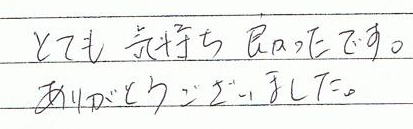 とても 気持ち 良かったです。
ありがとうございました。